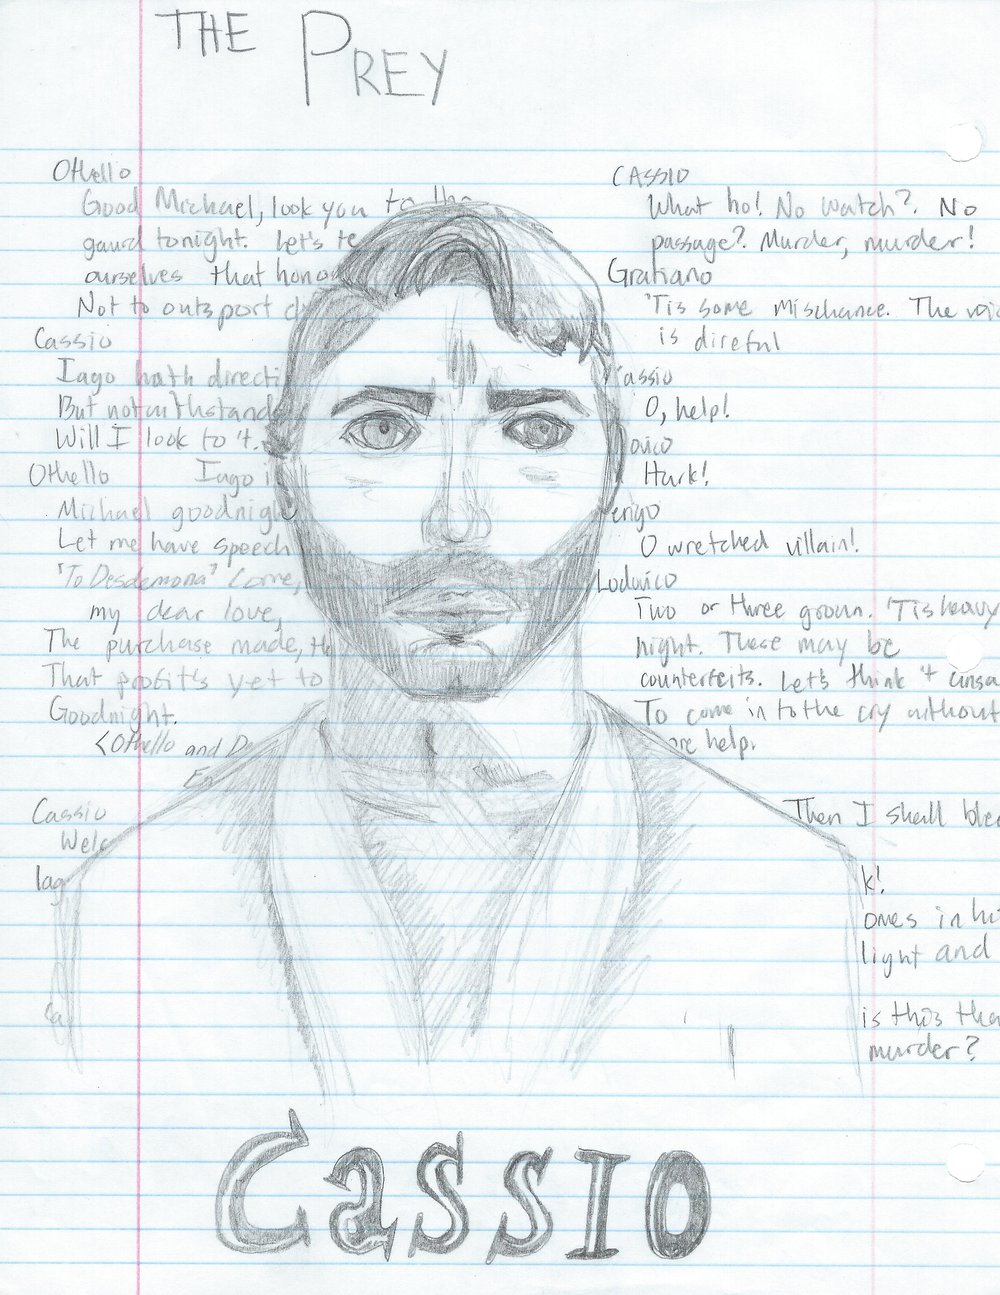 THE PREY
Othello
Good Michael, look you to the
gaurd tonight. Let's te
ourselves that hono
Not to outsport d
Cassio
Iago hath directi
But notwithstand
Will I look to 't.
Othello Iago i
Michael goodnigh
Let me have speech
"To Desdemona" Come,
my dear love,
The purchase made, th
That profit's yet to
Goodnight.
<Othello and De
En
Cassio
Welc
Iag
Ca
CASSIO
What ho! No watch? No
passage? Murder, murder!
Gratiano
'Tis some mischance. The voic
is direful
Cassio
O, help!
ovico
Hark!
erigo
O wretched villain!
Lodovico
Two or three groan. 'Tis heavy
night. These may be
counterfeits. Let's think 't unsa
To come in to the cry without
ore help.
Then I shall blee
k!
omes in hi
light and
is this tha
murder?
CaSSIO